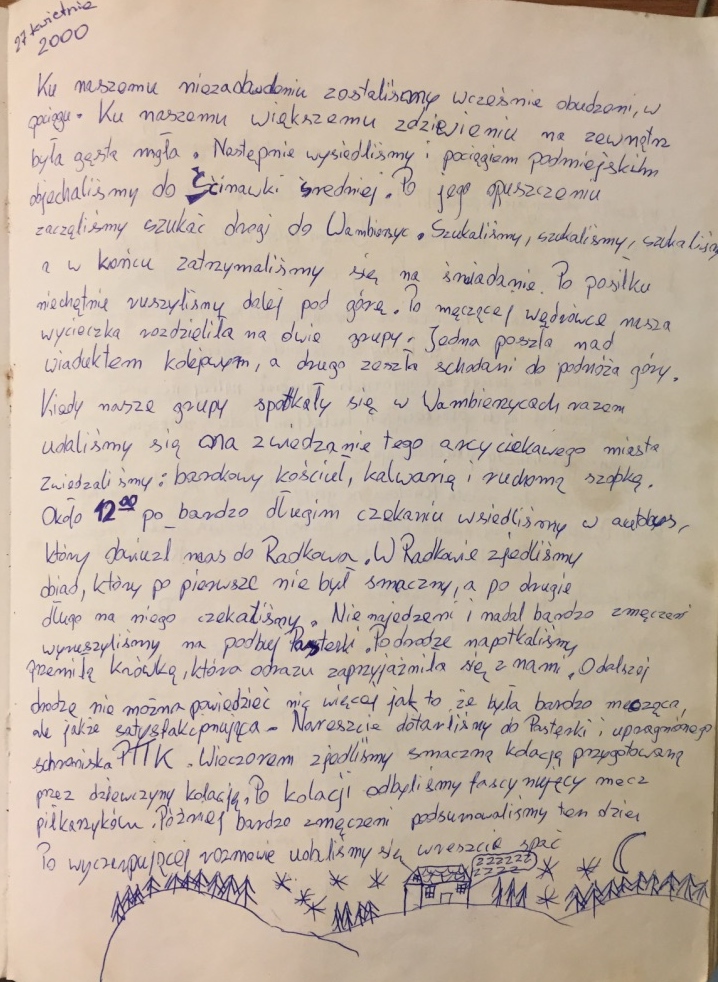 27 kwietnia
2000
Ku naszemu niezadowoleniu zostaliśmy wcześnie obudzeni, w
pociągu. Ku naszemu większemu zdziwieniu na zewnątrz
była gęsta mgła. Następnie wysiedliśmy i pociągiem podmiejskim
dojechaliśmy do Ścinawki Średniej. Po jego opuszczeniu
zaczęliśmy szukać drogi do Wambierzyc. Szukaliśmy, szukaliśmy, szukaliśmy
a w końcu zatrzymaliśmy się na śniadanie. Po posiłku
niechętnie ruszyliśmy dalej pod górę. Po męczącej wędrówce nasza
wycieczka rozdzieliła na dwie grupy. Jedna poszła nad
wiaduktem kolejowym, a drugo zeszła schodami do podnóża góry.
Kiedy nasze grupy spotkały się w Wambierzycach razem
udaliśmy się na zwiedzanie tego arcyciekawego miasta
Zwiedzaliśmy: barokowy kościół, kalwarię i ruchomą szopkę.
Około 12⁰⁰ po bardzo długim czekaniu wsiedliśmy w autobus,
który dowiózł nas do Radkowa. W Radkowie zjedliśmy
obiad, który po pierwsze nie był smaczny, a po drugie
długo na niego czekaliśmy. Nie najedzeni i nadal bardzo zmęczeni
wyruszyliśmy na podbój Pasterki. Po drodze napotkaliśmy
przemiłą krówkę, która odrazu zaprzyjaźniła się z nami. O dalszej
drodze nie można powiedzieć nic więcej jak to, że była bardzo męcząca,
ale jakże satysfakcjonująca - Nareszcie dotarliśmy do Pasterki i upragnionego
schroniska PTTK. Wieczorem zjedliśmy smaczną kolację przygotowaną
przez dziewczyny kolację. Po kolacji odbyliśmy fascynujący mecz
piłkarzyków. Później bardzo zmęczeni podsumowaliśmy ten dzień
Po wyczerpującej rozmowie udaliśmy się wreszcie spać
zzzzzz
zzzz